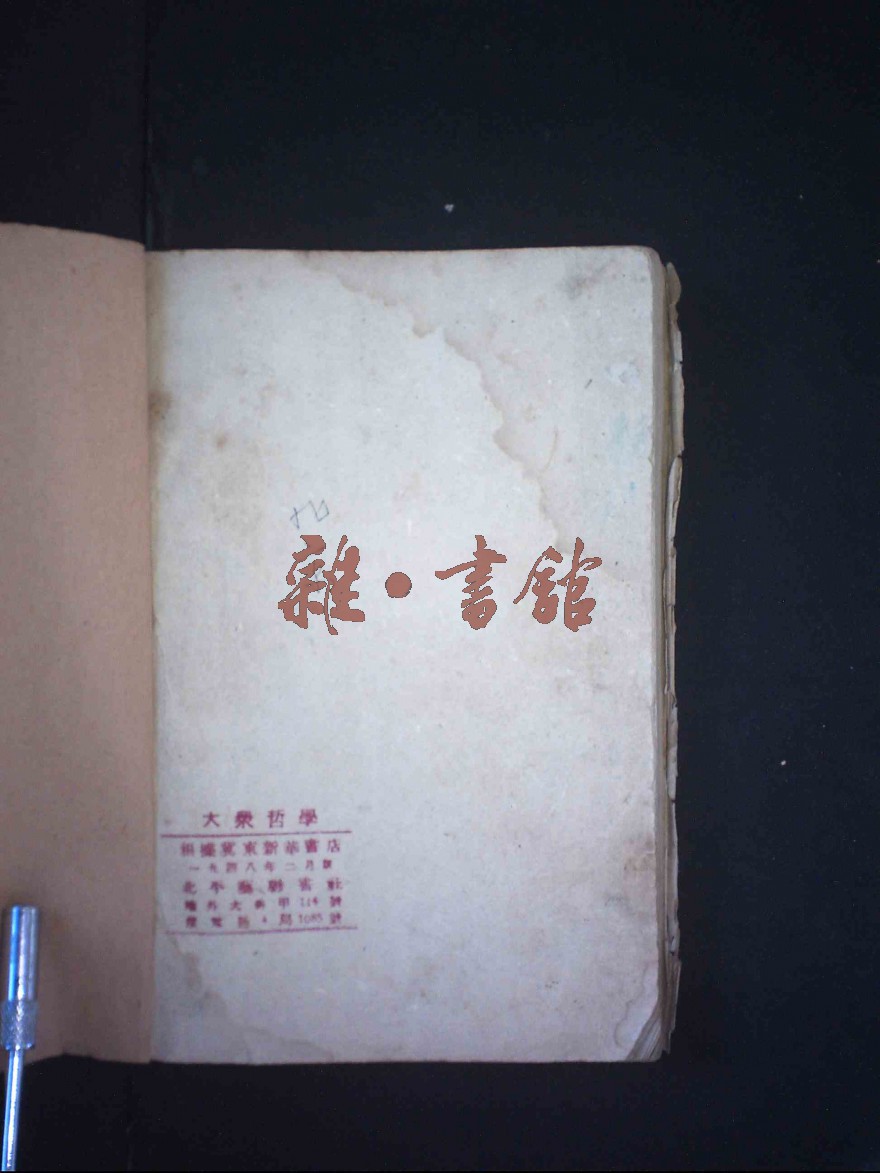 雜·書館
大衆哲學
根據冀東新華書店
一九四八年二月版
北平 聯書社
外大 甲114號
電 4局1085號